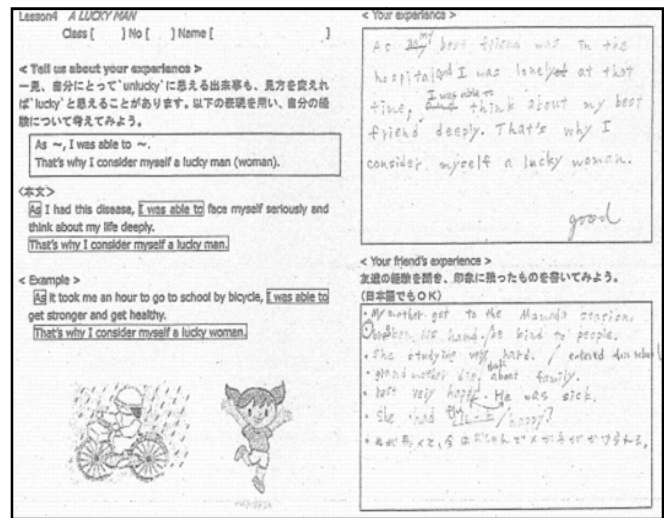 Lesson4 A LUCKY MAN
Class [ ] No [ ] Name [ ]
< Tell us about your experience >
一見、自分にとって`unlucky'に思える出来事も、見方を変えれ
ば`lucky'と思えることがあります。以下の表現を用い、自分の経
験について考えてみよう。
As ～, I was able to ～.
That's why I consider myself a lucky man (woman).
<本文>
As I had this disease, I was able to face myself seriously and
think about my life deeply.
That's why I consider myself a lucky man.
< Example >
As it took me an hour to go to school by bicycle, I was able to
get stronger and get healthy.
That's why I consider myself a lucky woman.
< Your experience >
As my best friend was in the
hospital and I was lonely at that
time, I was able to think about my best
friend deeply. That's why I
consider myself a lucky woman.
good
< Your friend's experience >
友達の経験を聞き、印象に残ったものを書いてみよう。
(日本語でもOK)
・My mother got to the station.
his hand. be kind to people.
・she studying very hard. / entered
・grand mother about family.
very happy. He was sick.
・she had / happy?